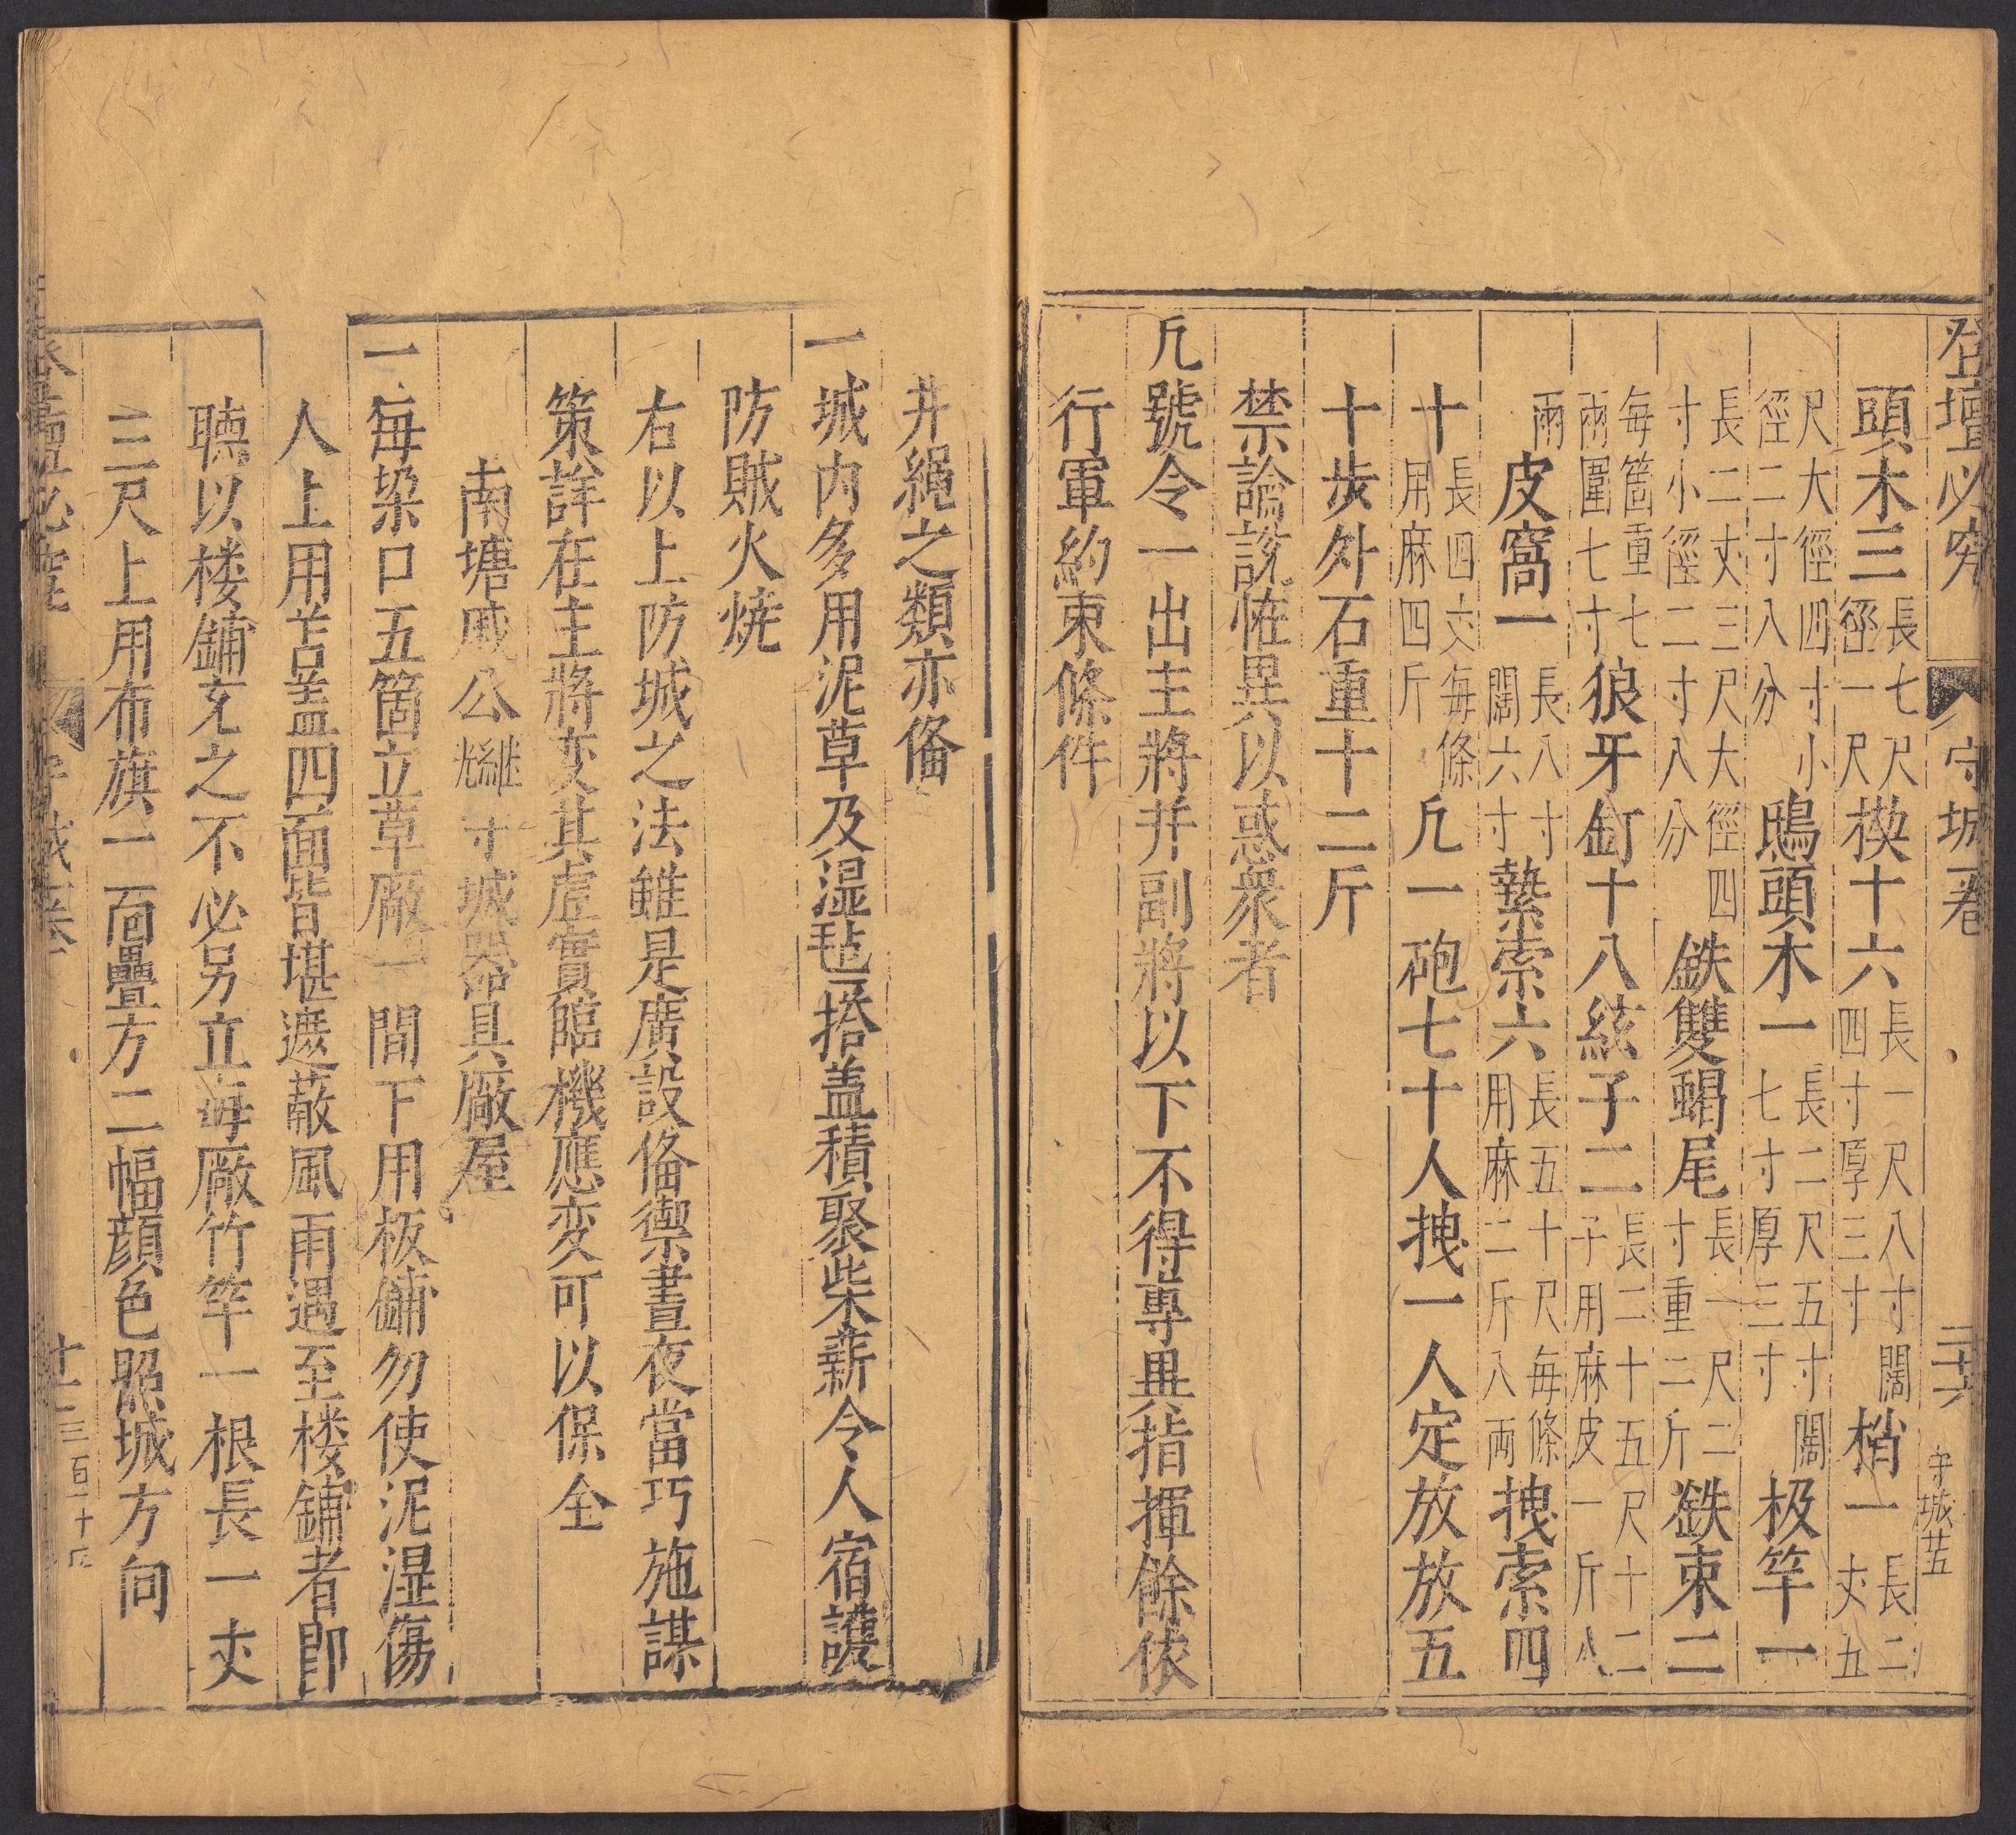 登壇必究 守城一卷 二十六 守城廿五
頭木三長七尺徑一尺楔十六長一尺八寸闊四寸厚三寸梢一長二丈五
尺大徑四寸小徑二寸八分鴟頭木一長二尺五寸闊七寸厚三寸极竿一
長二丈三尺大徑四寸小徑二寸八分鉄雙蝎尾長一尺二寸重二斤鉄束二
每箇重七兩圍七寸狼牙釘十八絃子二長二十五尺十二子用麻皮一斤八
兩皮窩一長八寸闊六寸蟄索六長五十尺每條用麻二斤八兩拽索四
十長四丈每條用麻四斤凢一砲七十人拽一人定放放五
十步外石重十二斤
禁論說怪異以惑衆者
凢號令一出主將并副將以下不得專異指揮餘依
行軍約束條件
井繩之類亦俻
一城内多用泥草及濕毡搭盖積聚柴薪令人宿護
防賊火燒
右以上防城之法雖是廣設俻禦晝夜當巧施謀
策詳在主將变其虛實臨機應变可以保全
南塘戚公繼光守城器具廠屋
一每垜口五箇立草廠一間下用板鋪勿使泥濕傷
人上用苫盖四面皆堪遮蔽風雨遇至楼鋪者即
聽以楼鋪充之不必另立每廠竹竿一根長一丈
三尺上用布旗一面疊方二幅顔色照城方向
登壇必究 守城一卷 三百一十